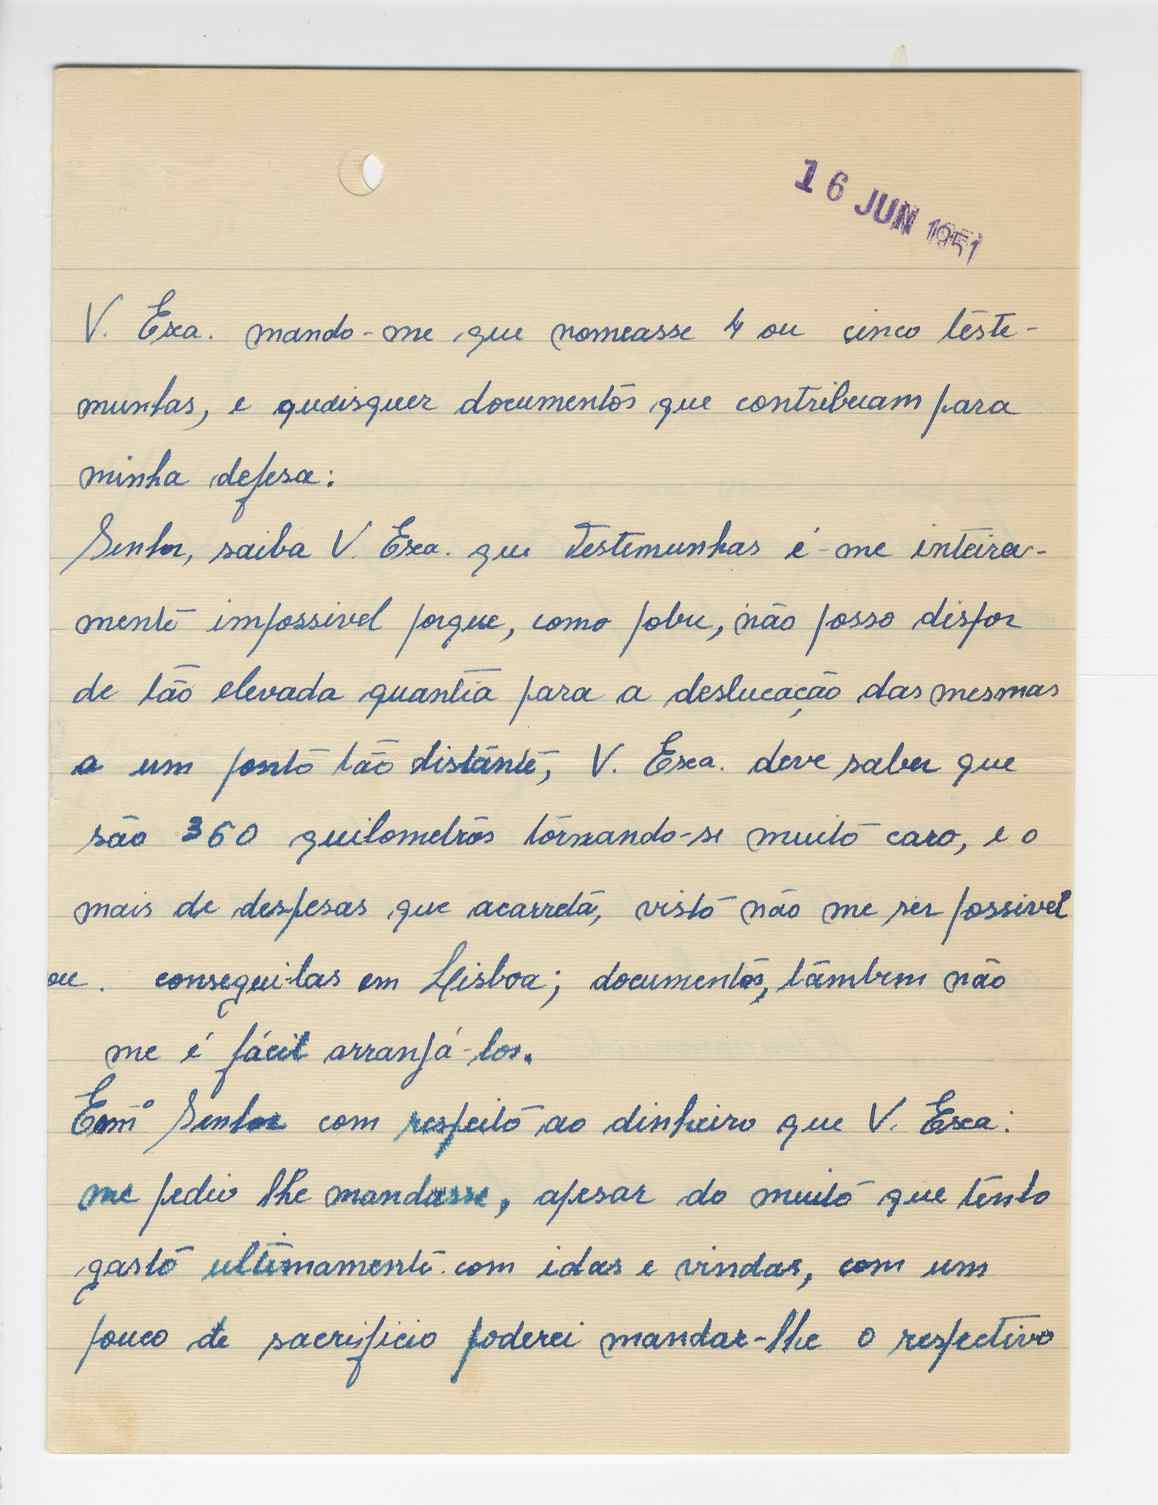 16 JUN 1951
V. Exa. mando-me que nomeasse 4 ou cinco teste-
munhas, e quaisquer documentos que contribuam para
minha defesa:
Senhor, saiba V. Exa. que Testemunhas é-me inteira-
mente impossivel porque, como pobre, não posso dispor
de tão elevada quantia para a deslucação das mesmas
a um ponto tão distante, V. Exa. deve saber que
são 360 quilometros tornando-se muito caro, e o
mais de despesas que acarreta, visto não me ser possivel
ou. consegui-las em Lisboa; documentos, tambem não
me é fácil arranjá-los.
Exmº Senhor com respeito ao dinheiro que V. Exa:
me pediu lhe mandasse, apesar do muito que tenho
gasto ultimamente com idas e vindas, com um
pouco de sacrificio poderei mandar-lhe o respectivo